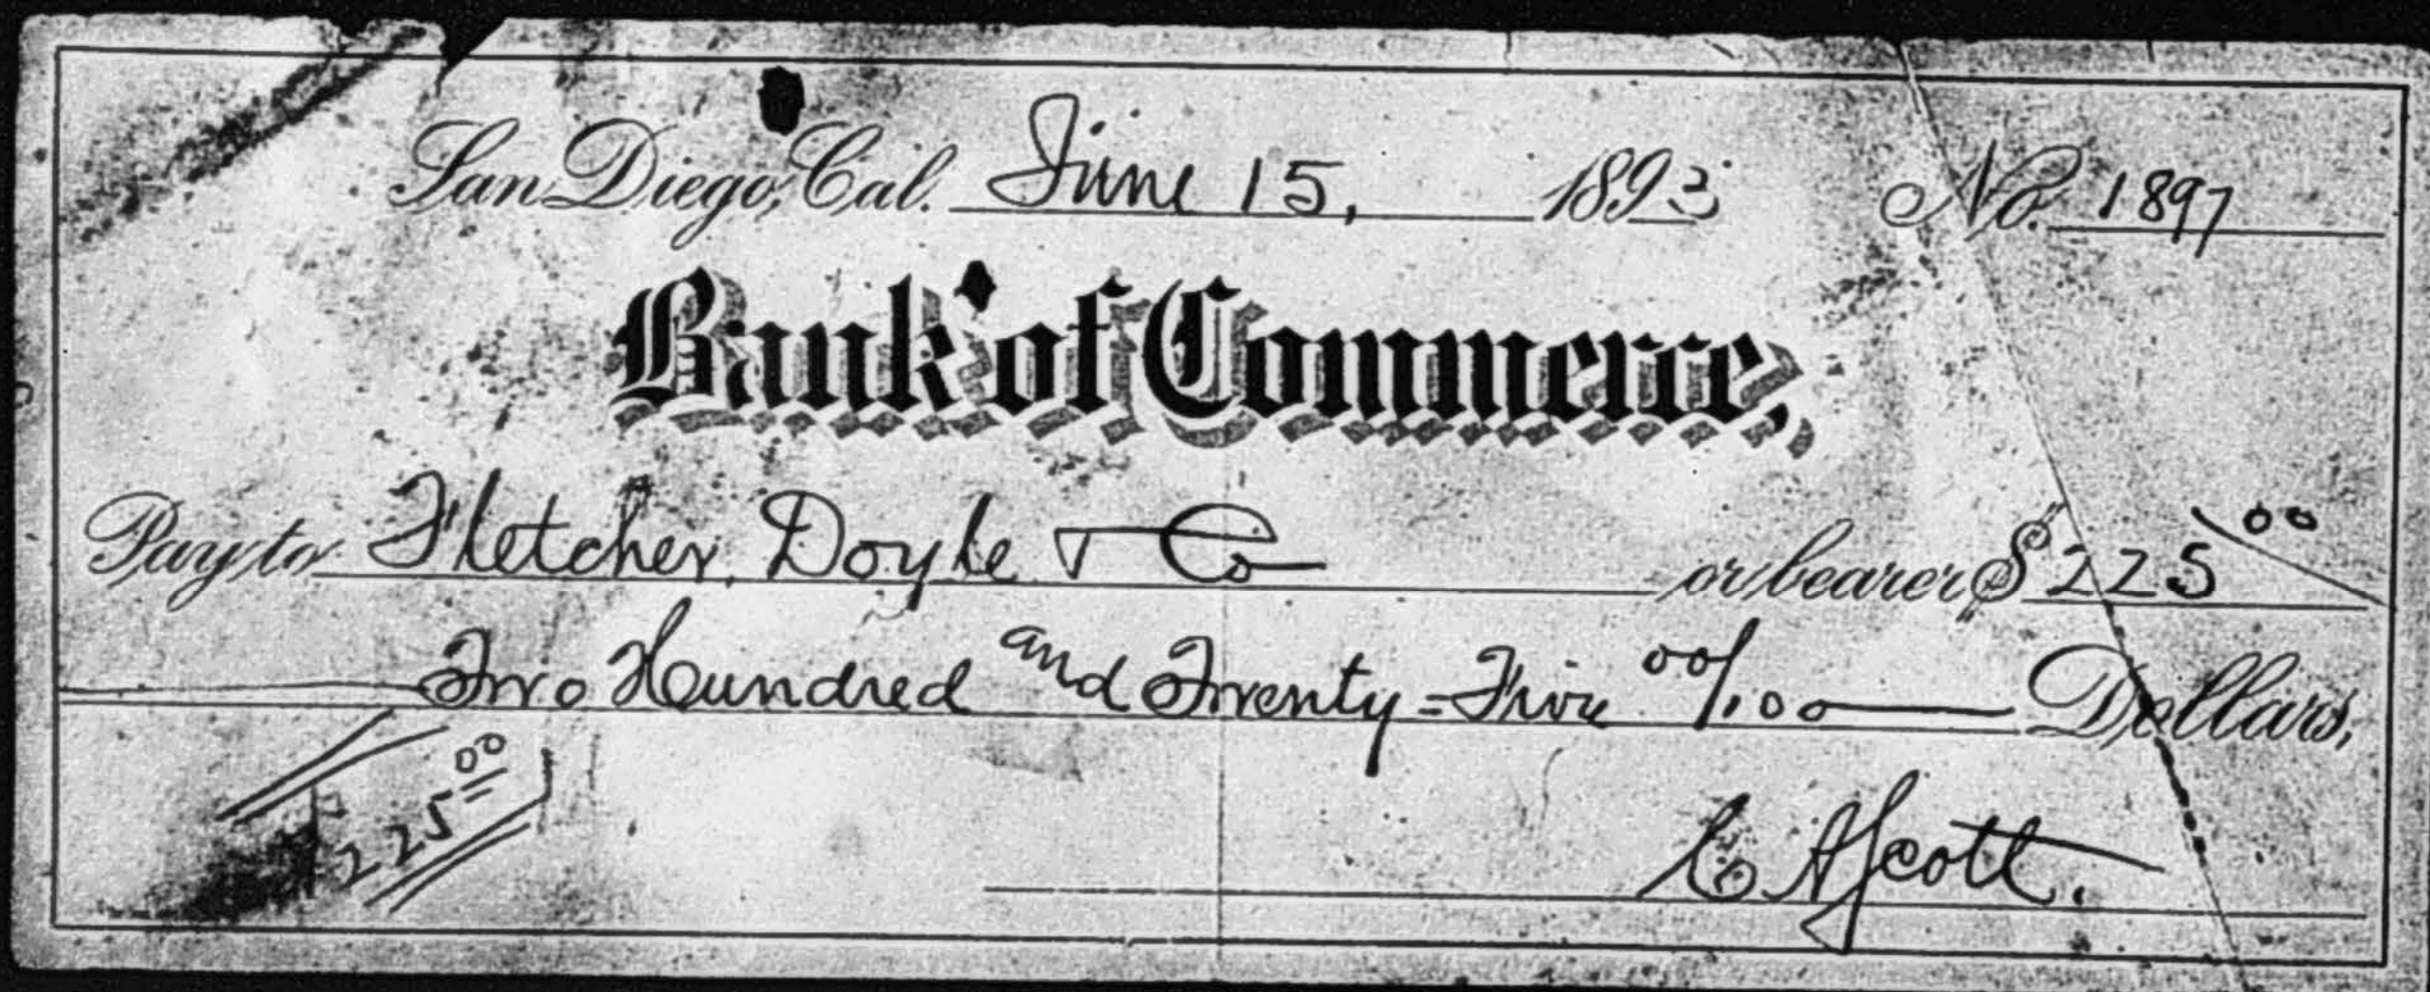 San Diego, Cal. June 15, 1893 No. 1897
Bank of Commerce,
Pay to Fletcher, Doyle & Co or bearer $ 225 00
Two Hundred and Twenty-Five 00/100 Dollars,
225 00
Scott.